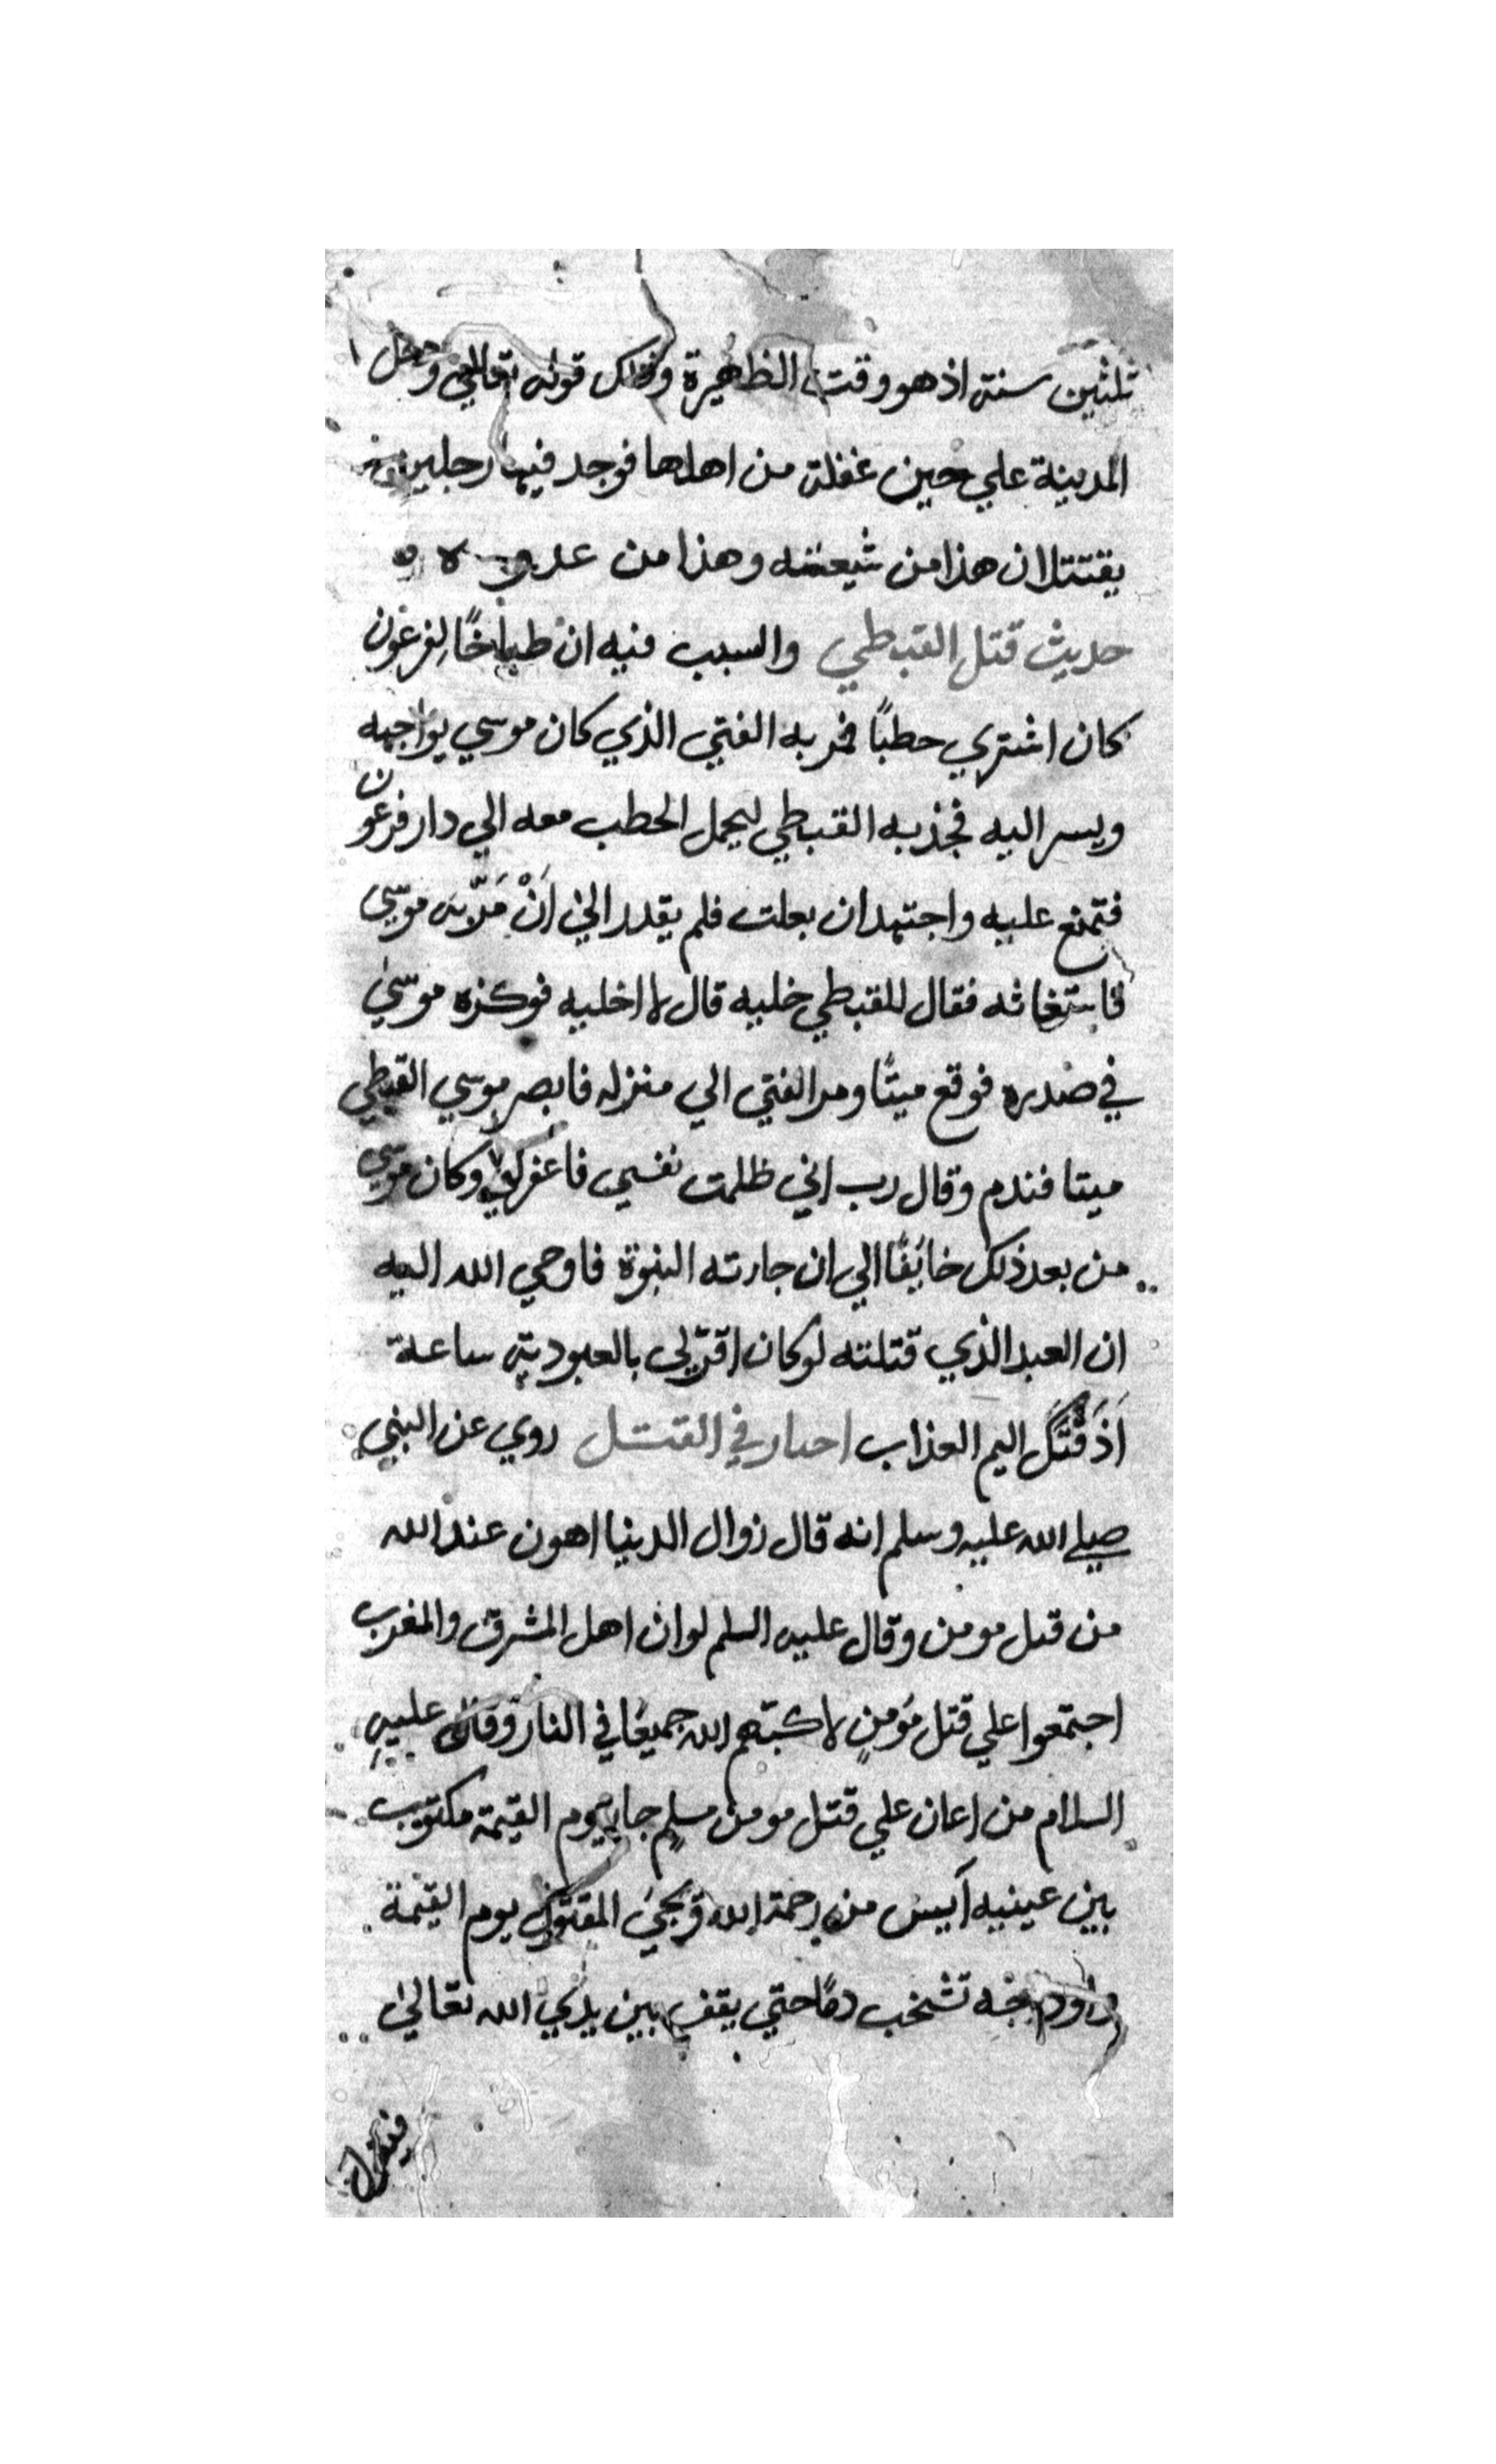 ثلثين سنة اذ هو وقت الظهيرة وذلك قوله تعالي ودخل
المدينة علي حين غفلة من اهلها فوجد فيها رجلين
يقتتلان هذا من شيعته وهذا من عدوه
حديث قتل القبطي والسبب فيه ان طباخًا لفرعون
كان اشتري حطبًا فمر به الفتي الذي كان موسي يواجهه
ويسر اليه فجذبه القبطي ليحمل الحطب معه الي دار فرعون
فتمنع عليه واجتهد ان يفلت فلم يقدر الي اَنْ مَرّ به موسي
فاستغاثه فقال للقبطي خليه قال لا اخليه فوكزه موسي
في صدره فوقع ميتًا ومر الفتي الي منزله فابصر موسي القبطي
ميتا فندم وقال رب اني ظلمت نفسي فاغفر لي وكان موسي
من بعد ذلك خائفًا الي ان جارته النبوة فاوحي الله اليه
ان العبد الذي قتلته لو كان اقرّ لي بالعبودية ساعة
اَذَقْتُكَ اليم العذاب احبار في القتل روي عن النبي
صلي الله عليه وسلم انه قال زوال الدنيا اهون عند الله
من قتل مومن وقال عليه السلم لو ان اهل المشرق والمغرب
اجتمعوا علي قتل مؤمنٍ لاكبتهم الله جميعًا في النار وقال عليه
السلام من اعان علي قتل مومن مسلم جا يوم القيمة مكتوب
بين عينيه آيس من رحمة الله ويجئ المقتول يوم القيمة
واوداجه تشخب دمًا حتي يقف بين يدي الله تعالي
فيقول